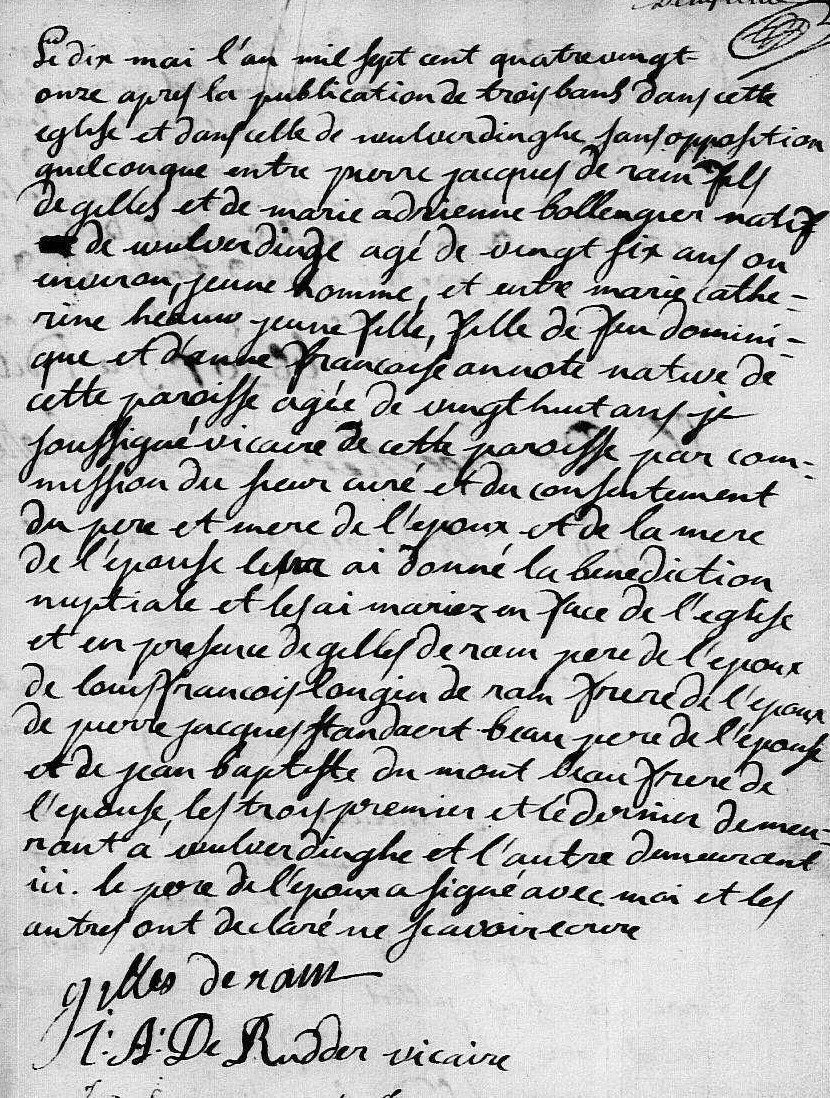 Le dix mai l'an mil sept cent quatre vingt
onze apres la publication de trois bans dans cette
eglise et dans celle de wulverdinghe sans opposition
quelconque entre pierre jacques de ram fils
de gilles et de marie adrienne bollengier natif
de wulverdinge agé de vingt six ans ou
environ, jeune homme, et entre marie cathe-
rine jeune fille, fille de feu domini-
que et d'anne francoise annote native de
cette paroisse agée de vingt huit ans je
soussigné vicaire de cette paroisse par com-
mission du sieur curé et du consentement
du pere et mere de l'epoux et de la mere
de l'épouse ai donné la benediction
nuptiale et les ai mariez en face de l'eglise
et en presence de gilles de ram pere de l'epoux
de louis francois longin de ram frere de l'epoux
de pierre jacques standaert beau pere de l'épouse
et de jean baptiste du mont beau frere de
l'epouse les trois premier et le dernier demeu-
rant a wulverdinghe et l'autre demeurant
ici. le pere de l'époux a signé avec moi et les
autres ont declaré ne scavoir ecrire
gilles de ram
J: A: De Rudder vicaire